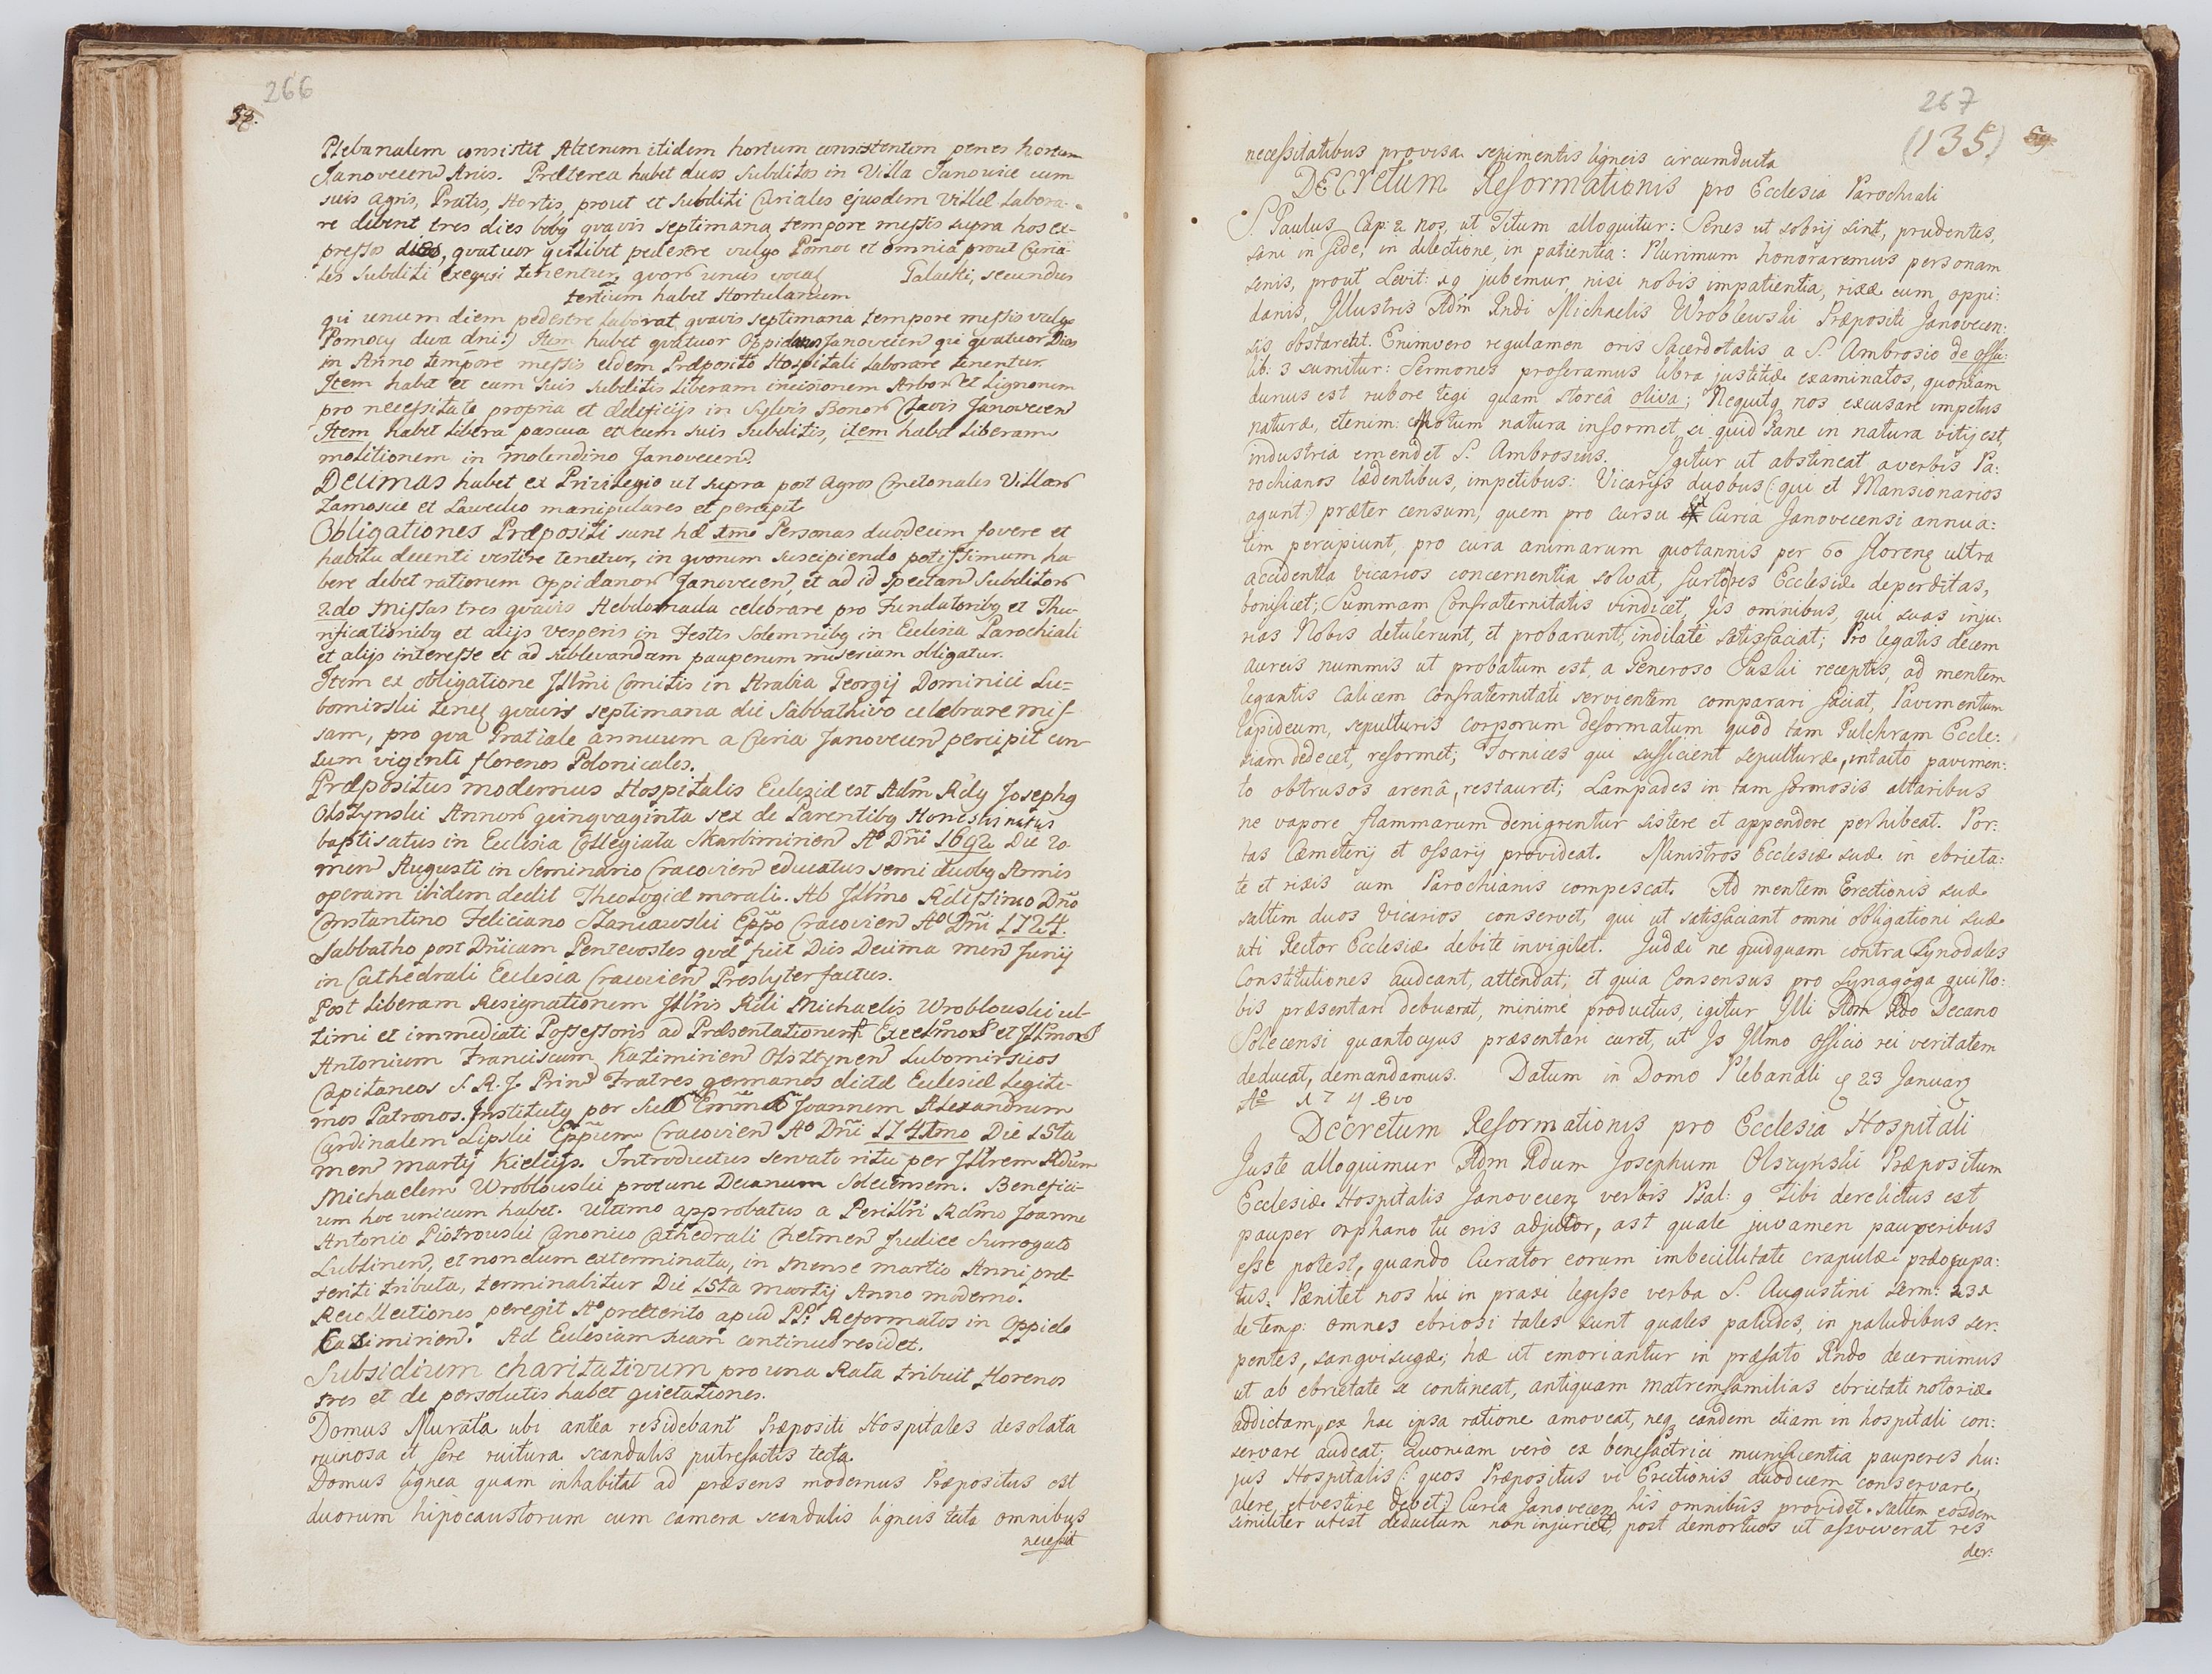 266
58.
Plebanalem consistit Alterum itidem hortum consistentem penes hortum
Janovecen Arcis. Præterea habet duos Subditos in Villa Janowice cum
suis agris, Pratis, Hortis, prout et Subditi Curiales ejusdem Villæ Labora-
re debent tres dies bobq quavis septimana tempore messis supra hos ex-
pressos dies, quatuor quilibet pedestre vulgo Pomoc et omnia prout Curia-
les Subditi exequi tenentur, quorum unus vocat Galacki, secundus
tertium habet Hortulanum
qui unum diem pedestre laborat quavis septimana tempore messis vulgo
Pomocy dwa dni:) Item habet quatuor Oppidanos Janovecien qui quatuor Dies
in Anno tempore messis eidem Præposito Hospitali Laborare tenentur.
Item habet et cum suis subditis liberam incisionem Arborum et Lignorum
pro necessitate propria et ædificijs in Sylvis Bonorum Clavis Janovecien
Item habet Libera pascua et cum suis Subditis, item habet Liberam
molitionem in molendino Janovecien.
Decimas habet ex Privilegio ut supra post agros Cmetonales Villarum
Zamoscie et Lawecko manipulares et percipit
Obligationes Præpositi sunt hæ 1mo Personas duodecim fovere et
habitu decenti vestire tenetur, in quorum suscipiendo potissimum ha-
bere debet rationem Oppidanorum Janovecien, et ad id spectan Subditorum
2do Missas tres quavis Hebdomada celebrare pro Fundatoribq et Thu-
rificationibq et alijs Vesperis in Festis Solemnibq in Ecclesia Parochiali
et alijs interesse et ad sublevandam pauperum miseriam obligatur.
Item ex obligatione Jllmi Comitis in Arabia Georgij Dominici Lu=
bomirski tenet quavis septimana die Sabbathivo celebrare mis-
sam, pro qua Gratiale annuum a Curia Janovecien percipit cen-
sum viginti florenos Polonicales.
Præpositus modernus Hospitalis Ecclesiæ est Adm Rdq Josephq
Olszynski Annorum quinquaginta sex de Parentibq Honestis natus
baptisatus in Ecclesia Collegiata Skarbimirien Ao Dni 1692 Die 20
men Augusti in Seminario Cracovien educatus semi duobq Annis
operam ibidem dedit Theologiæ morali. Ab Jllmo Rdissimo Dno
Constantino Feliciano Szaniawski Eppo Cracovien Ao Dni 1724.
Sabbatho post Dnicam Pentecostes quæ fuit Dies Decima men Junij
in Cathedrali Ecclesia Cracovien Presbyter factus.
Post Liberam Resignationem Jllris Rdi Michaelis Wroblouski ul-
timi et immediati Possessoris ad Præsentationem Excelmorum et Jllmorum
Antonium Franciscum Kazimirien Olsztynen Lubomirscios
Capitaneos S. R. J. Prind Fratres germanos dictæ Ecclesiæ Legiti-
mos Patronos. Institutq per Suæ Emmæ Joannem Alexandrum
Cardinalem Lipski Eppum Cracovien Ao Dni 1741mo Die 15ta
men martij Kielcijs. Introductus servato ritu per Jllrem Admum
Michaelem Wroblouski protunc Decanum Solecensem. Benefici-
um hoc unicum habet. Ultimo approbatus a Perillri Rdmo Joanne
Antonio Piotrouski Canonico Cathedrali Chelmen Judice Surrogato
Lublinen, et nondum exterminata, in mense martio Anni præ-
teriti tributa, terminabitur Die 15ta martij Anno moderno.
Recollectiones peregit Ao præterito apud PP: Reformatos in Oppido
Casimirien. Ad Ecclesiam suam continuo residet.
Subsidium charitativum pro una Rata tribuit florenos
tres et de persolutis habet quietationes.
Domus Murata ubi antea residebant Præpositi Hospitales desolata
ruinosa et fere ruitura scandulis putrefactis tecta.
Domus lignea quam inhabitat ad præsens modernus Præpositus est
duorum hipocaustorum cum camera scandulis ligneis tecta omnibus
necessit
267
(135.)
59
necessitatibus provisa sepimentis ligneis circumducta
DECretum Reformationis pro Ecclesia Parochiali
S. Paulus Cap: 2 nos, ut Titum alloquitur: Senes ut sobrij sint, prudentes,
sani in fide, in dilectione, in patientia: Plurimum honoraremus personam
senis, prout Levit: 19 jubemur, nisi nobis impatientia, rixæ cum oppi:
danis, Jllustris Adm Rndi Michaelis Wroblewski Præpositi Janovecen:
sis obstarent. Enimvero regulamen oris Sacerdotalis a S. Ambrosio de offi:
lib: 3 sumitur: Sermones proferamus libra justitiæ examinatos, quoniam
durius est rubore tegi quam storeâ oliva; Nequitq nos excusare impetus
naturæ, etenim: motum natura informet, si quid sane in natura vitij est,
industria emendet S. Ambrosius. Igitur ut abstineat a verbis Pa:
rochianos lædentibus, impetibus: Vicarijs duobus (: qui et Mansionarios
agunt:) præter censum, quem pro cursu ex Curia Janovecensi annua:
tim percipiunt, pro cura animarum quotannis per 60 florenq ultra
accidentia Vicarios concernentia solvat, furtores Ecclesiæ deperditas,
bonificet; Summam Confraternitatis vindicet, Iis omnibus, qui suas inju:
rias Nobis detulerunt, et probarunt, indilatè satisfaciat; Pro legatis decem
aureis nummis ut probatum est, a Generoso Puski receptis, ad mentem
legantis Calicem confraternitati servientem comparari faciat, Pavimentum
lapideum, sepulturis corporum deformatum quod tam Pulchram Eccle:
siam dedecet, reformet; Fornices qui sufficient sepulturæ, intacto pavimen:
to obtrusos arenâ, restauret; Lampades in tam formosis altaribus
ne vapore flammarum denigrentur sistere et appendere perhibeat. Por:
tas Cæmeterij et ossarij provideat. Ministros Ecclesiæ suæ in ebrieta:
te et rixis cum Parochianis compescat. Ad mentem Erectionis suæ
saltim duos Vicarios conservet, qui ut satisfaciant omni obligationi suæ
uti Rector Ecclesiæ debite invigilet. Judæi ne quidquam contra Synodales
Constitutiones audeant, attendat; et quia Consensus pro Synagoga qui No:
bis præsentari debuerat, minimè productus, igitur Jlli Adm Rdo Decano
Solecensi quantocyus præsentari curet, ut Is Jllmo Officio rei veritatem
deducat, demandamus. Datum in Domo Plebanali d 23 January
Ao 1 7 4 8vo
Decretum Reformationis pro Ecclesia Hospitali
Juste alloquimur Adm Rdum Josephum Olszynski Præpositum
Ecclesiæ Hospitalis Janovecen verbis Psal: 9 Tibi derelictus est
pauper orphano tu eris adjutor, ast quale juvamen pauperibus
esse potest, quando Curator eorum imbecillitate crapulæ præocupa:
tus. Pænitet nos hic in praxi legisse verba S. Augustini serm: 231
de temp: omnes ebriosi tales sunt quales paludes, in paludibus ser:
pentes, sangvisugæ; hæ ut emoriantur in præfato Rndo decernimus
ut ab ebrietate se contineat, antiquam matremfamilias ebrietati notoriæ
addictam, ex hac ipsa ratione amoveat, neq eandem etiam in hospitali con:
servare audeat. Quoniam verò ex benefactrici munificentia pauperes hu:
jus Hospitalis (: quos Præpositus vi Erectionis duodecim conservare,
alere, et vestire debet:) Curia Janovecen his omnibus providet, saltem eosdem
similiter ut est deductum non injuriet, post demortuos ut assveverat res
der: